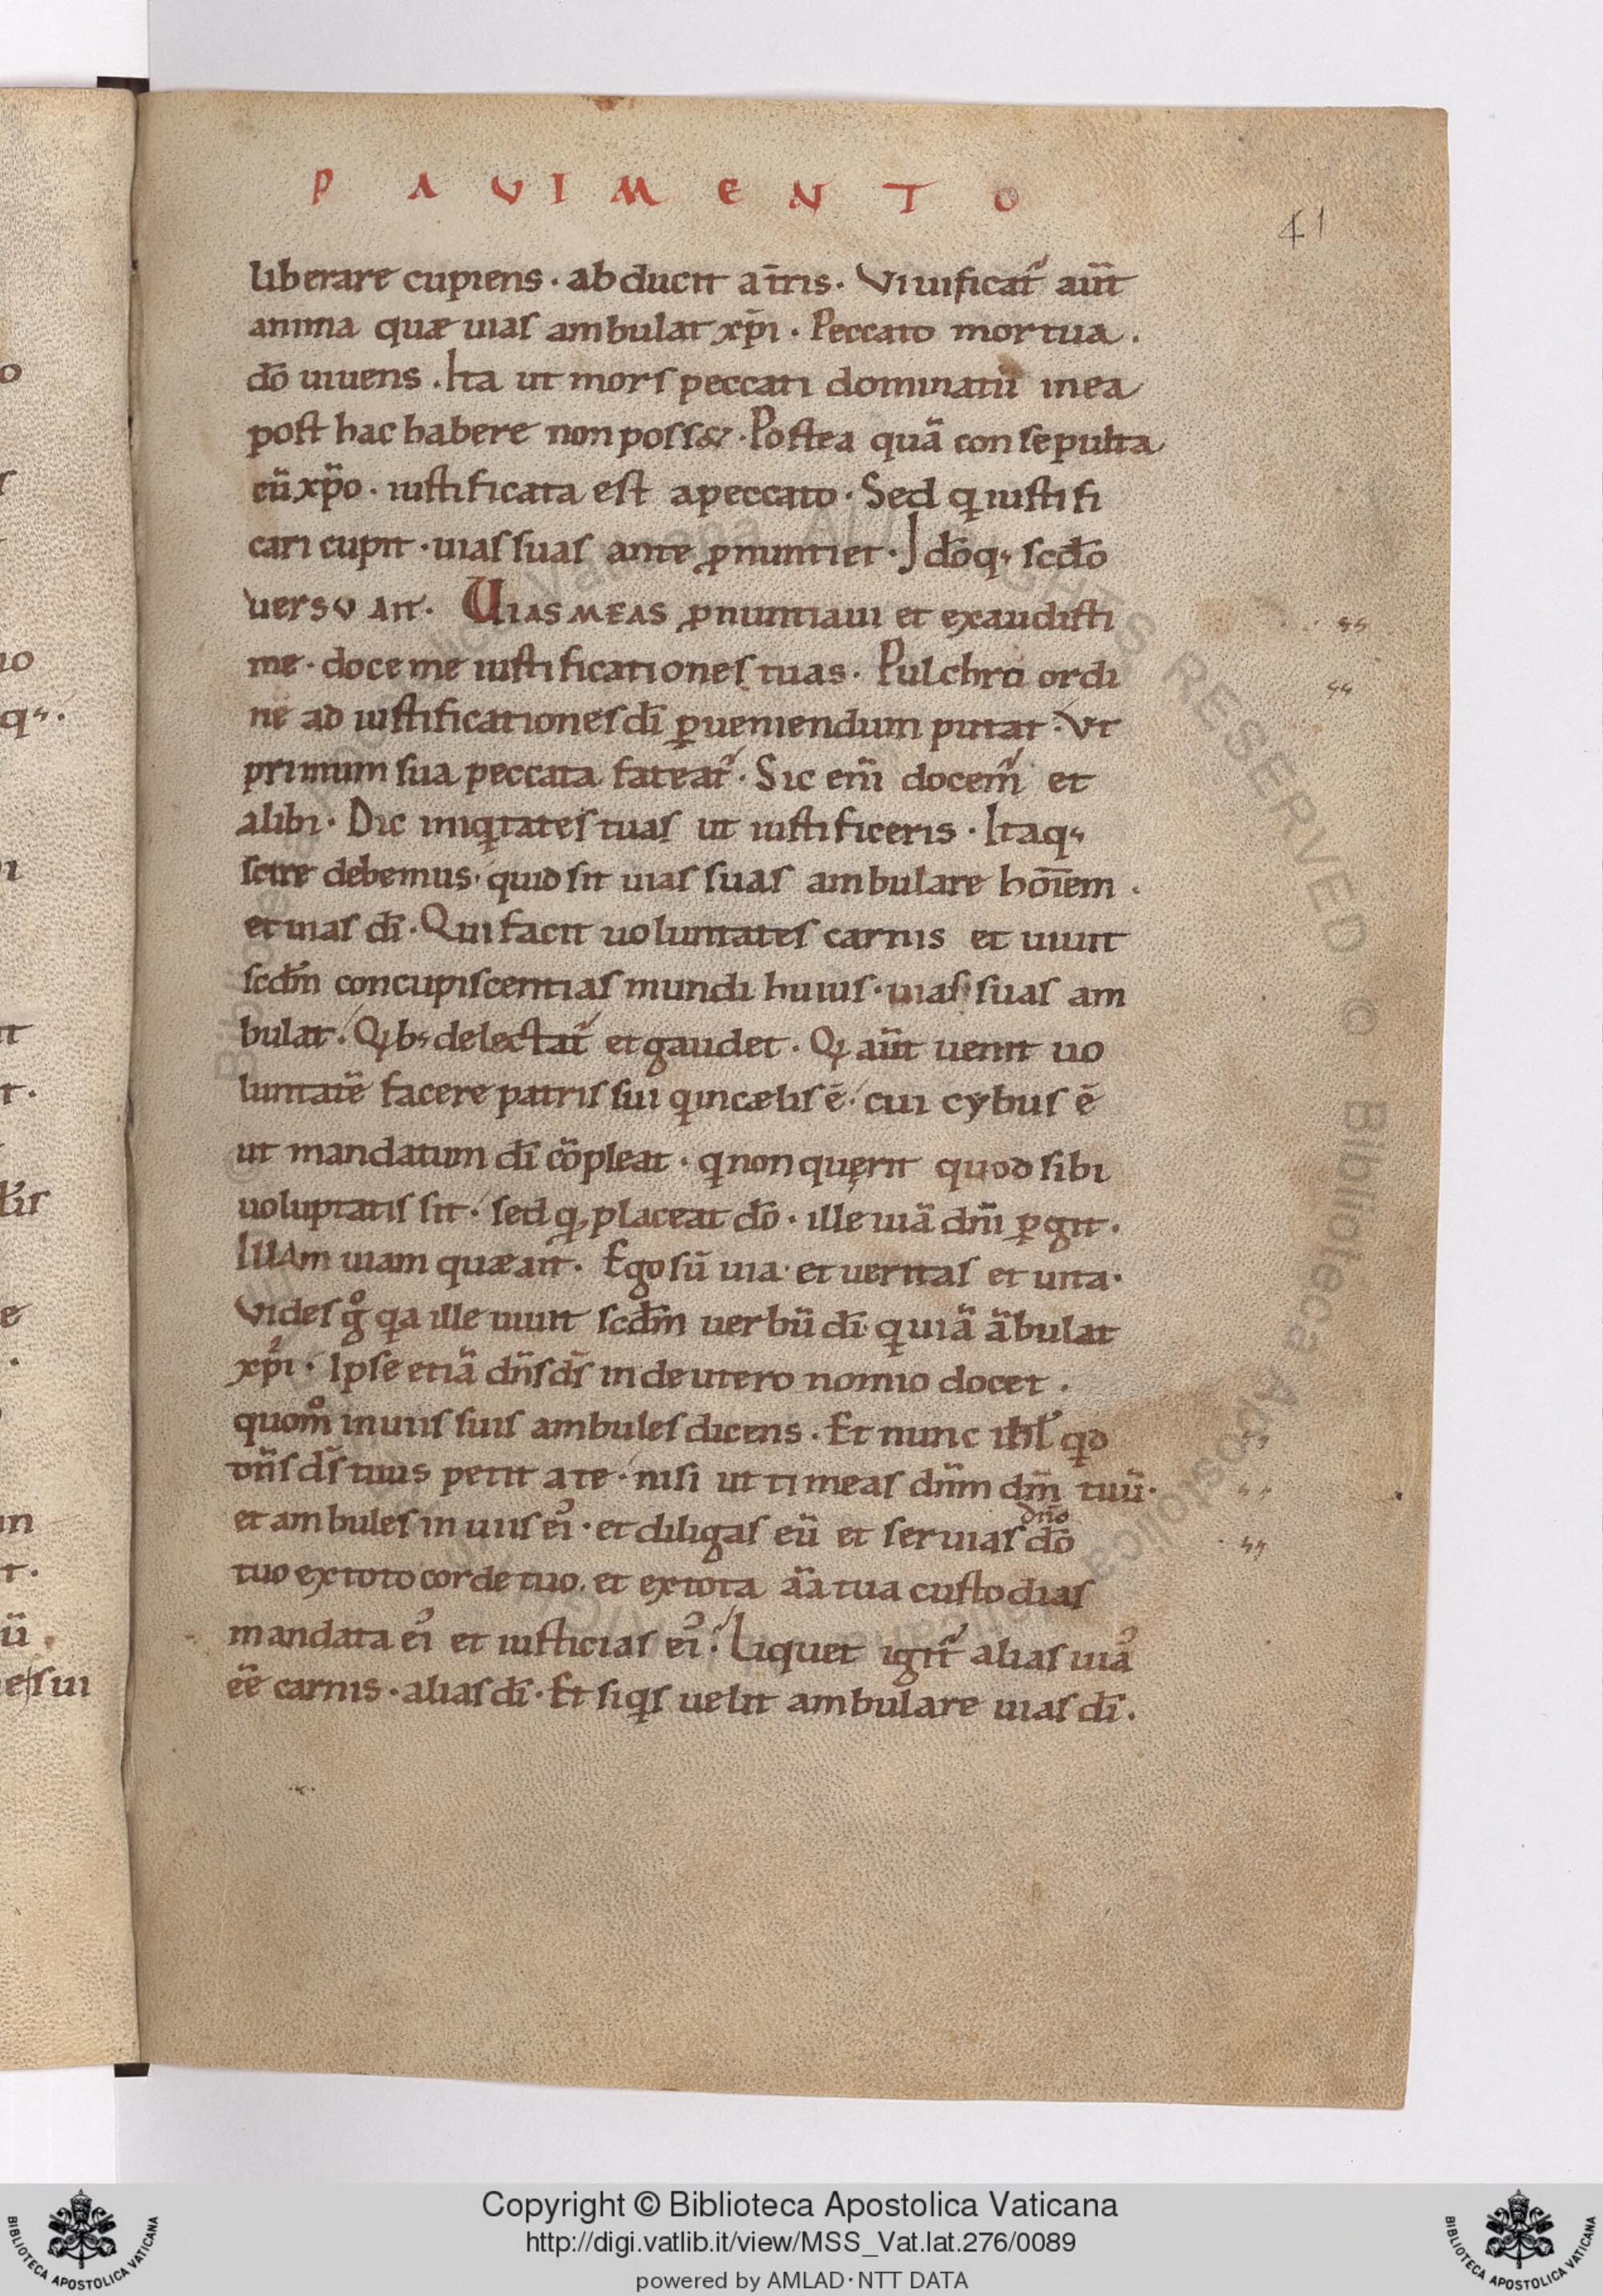 P A V I M E N T O
41
liberare cupiens · abducit a t̄ris · Viuificat᷑ aut̄
anima quæ uias ambulat xp̄i · Peccato mortua ·
dō uiuens · Ita ut mors peccati dominatū in ea
post hac habere non poss& · Postea quā consepulta
cū xp̄o · iustificata est a peccato · Sed q iustifi
cari cupit · uias suas ante ꝓnuntiet · Idōq; scdo
uersu ait · VIAS MEAS ꝓnuntiaui et exaudisti
me · doce me iustificationes tuas · Pulchro ordi
ne ad iustificationes dī ꝑueniendum putat · Vt
primum sua peccata fateat᷑ · Sic enī docem᷒ et
alibi · Dic iniqtates tuas ut iustificeris · Itaq;
scire debemus · quid sit uias suas ambulare hoīem ·
et uias dī · Qui facit uoluntates carnis et uiuit
scdm concupiscentias mundi huius · uias suas am
bulat · Qb; delectat᷑ et gaudet · Q aut̄ uenit uo
luntatē facere patris sui q in cælis ē · cui cybus ē
ut mandatum dī cōpleat · q non quęrit quod sibi
uoluptatis sit · sed qd placeat dō · ille uiā dnī ꝑgit ·
Illam uiam quæ ait · Ego sū uia · et ueritas et uita ·
Vides gͦ qa ille uiuit scdm uerbū dī · q uiā ābulat
xp̄i · Ipse etiā dn̄s ds̄ in deuteronomio docet ·
quom̊ in uiis suis ambules dicens · Et nunc ihl̄ qd
dn̄s ds̄ tuus petit a te · nisi ut timeas dn̄m dm̄ tuū ·
et ambules in uiis ei᷒ · et diligas eū et seruias dn̄o dō
tuo ex toto corde tuo · et ex tota āa tua custodias
mandata ei᷒ et iusticias ei᷒ · Liquet igit᷑ alias uia᷒
ēē carnis · alias dī · Et siqs uelit ambulare uias dī ·
o
q; ·
t ·
e
in
t ·
ū
sui
Copyright © Biblioteca Apostolica Vaticana
http://digi.vatlib.it/view/MSS_Vat.lat.276/0089
powered by AMLAD·NTT DATA
BIBLIOTECA APOSTOLICA VATICANA
BIBLIOTECA APOSTOLICA VATICANA